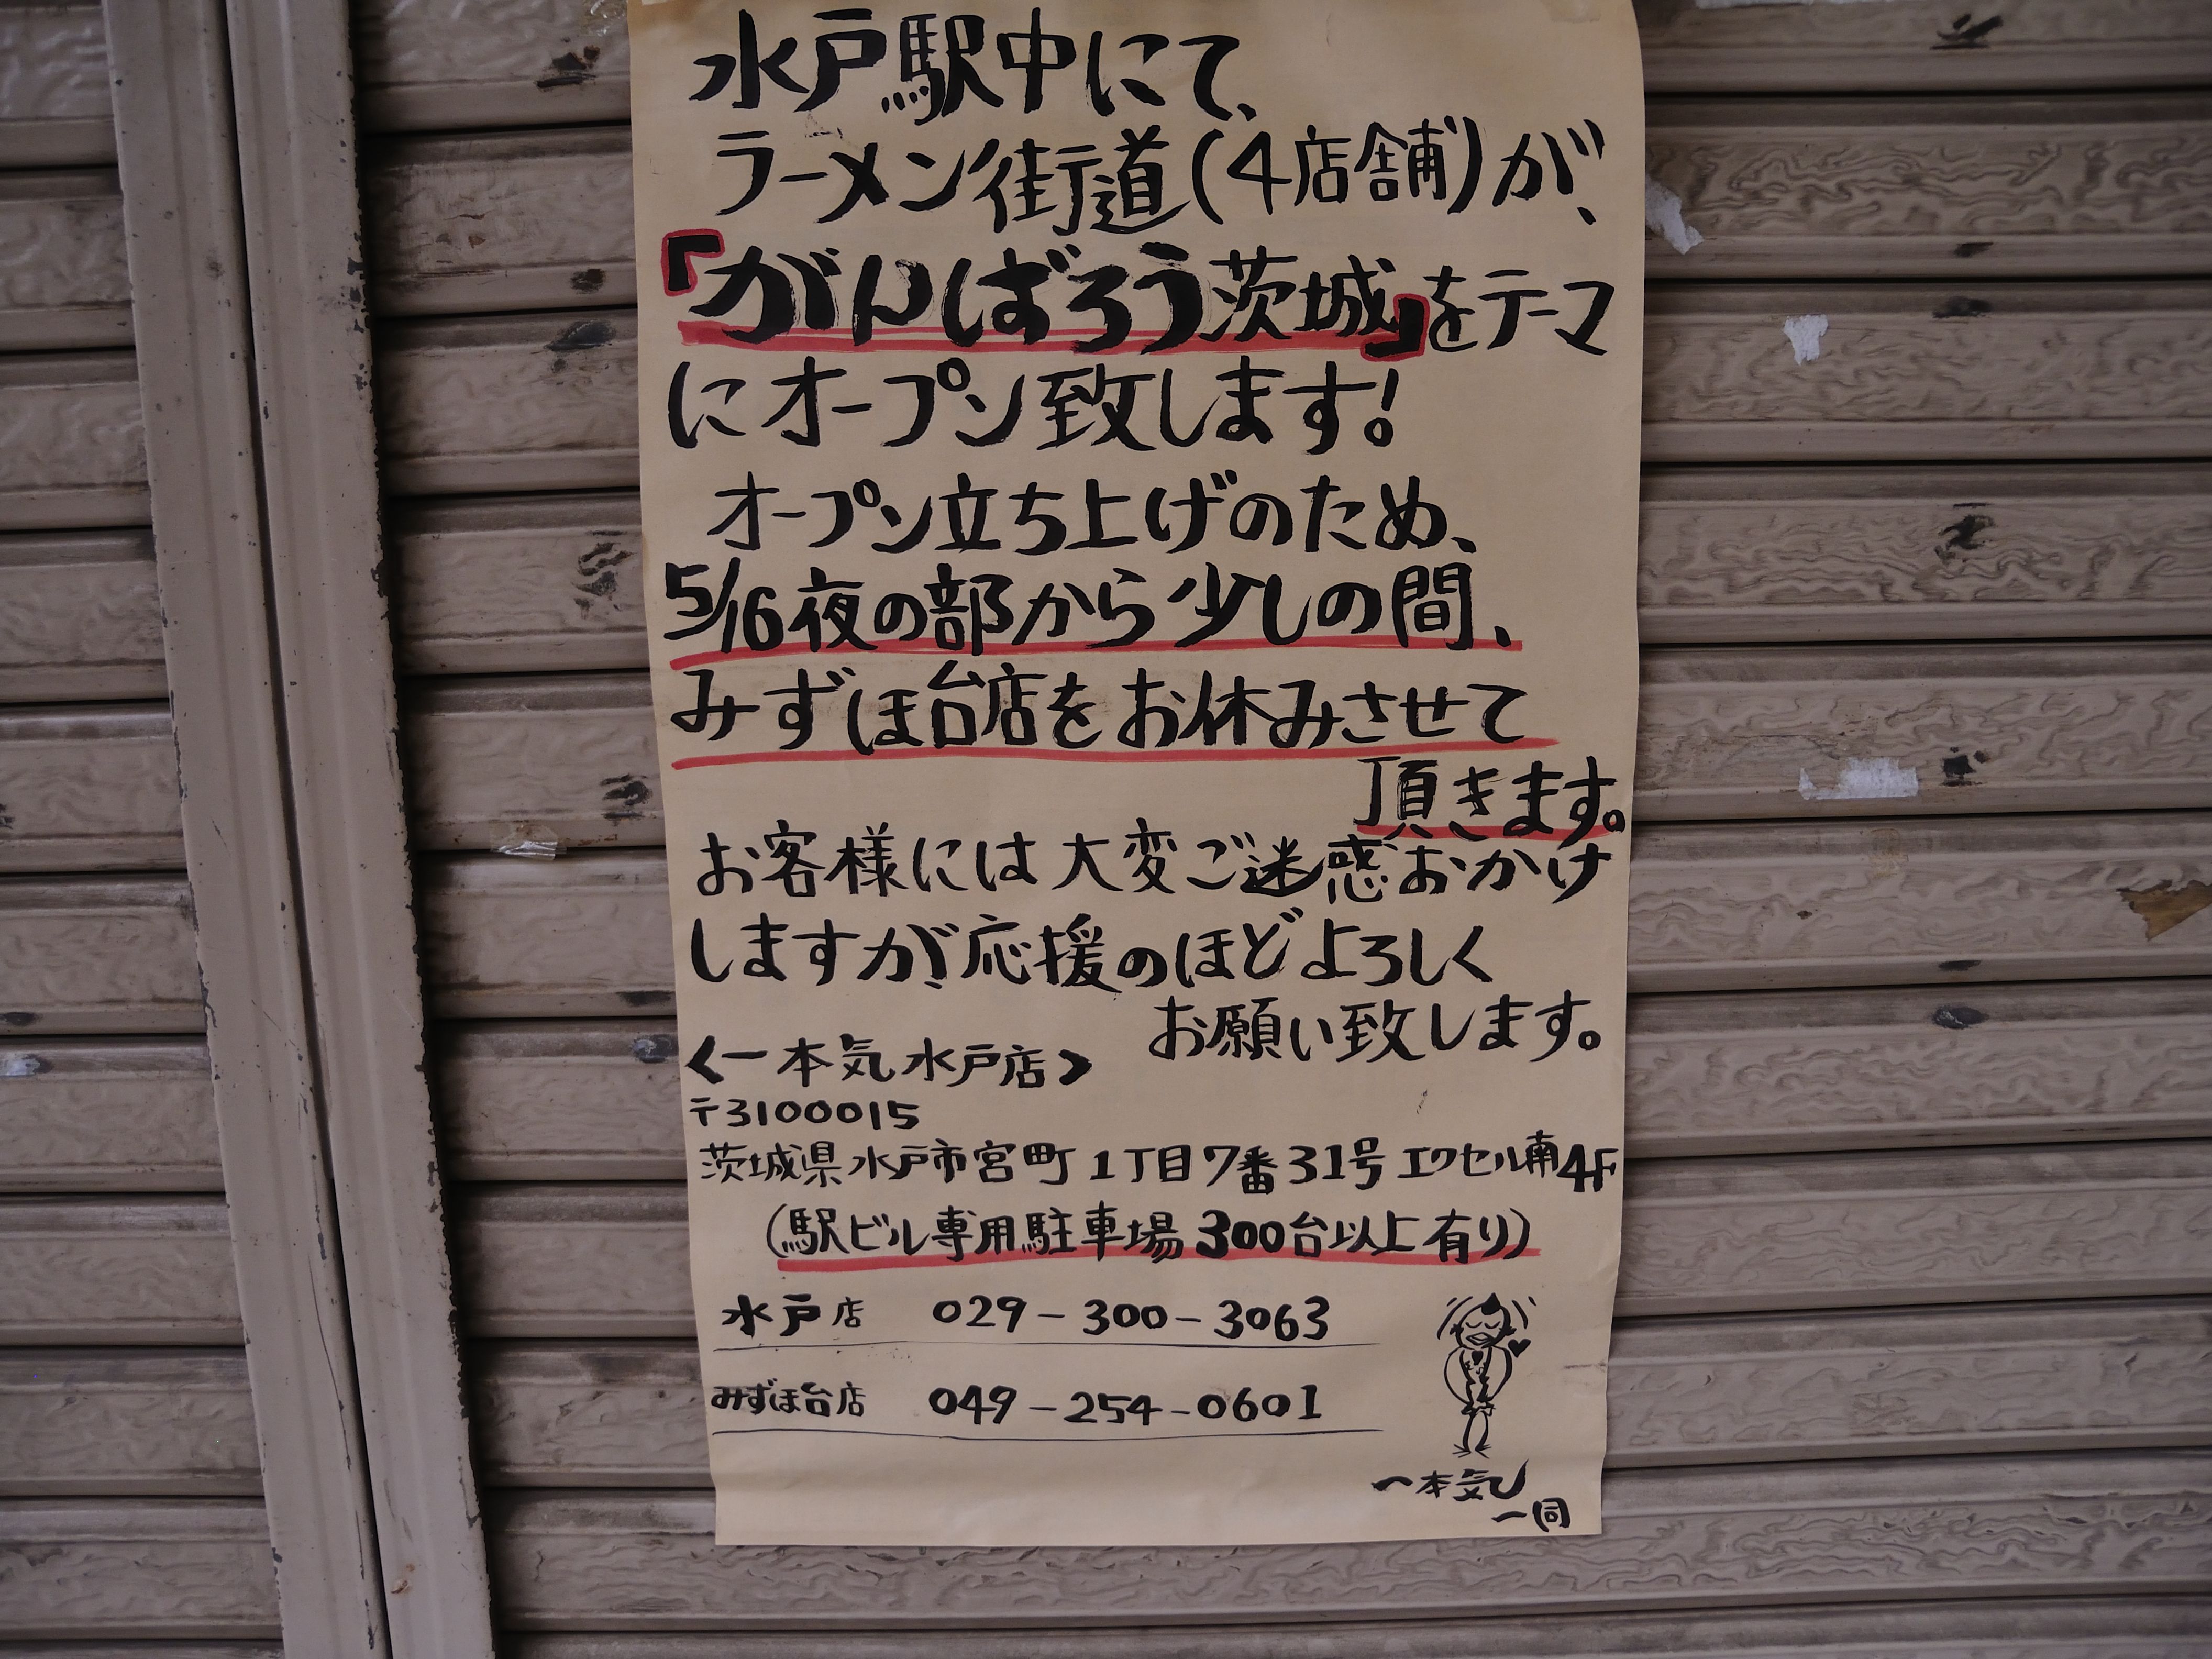 水戸駅中にて、
ラーメン街道(4店舗)が、
『がんばろう茨城』をテーマ
にオープン致します!
オープン立ち上げのため、
5/16夜の部から少しの間、
みずほ台店をお休みさせて
頂きます。
お客様には大変ご迷惑おかけ
しますが、応援のほどよろしく
お願い致します。
<一本気 水戸店>
〒3100015
茨城県水戸市宮町1丁目7番31号 エクセル南4F
(駅ビル専用駐車場300台以上有り)
水戸店 029-300-3063
みずほ台店 049-254-0601
一本気
一同